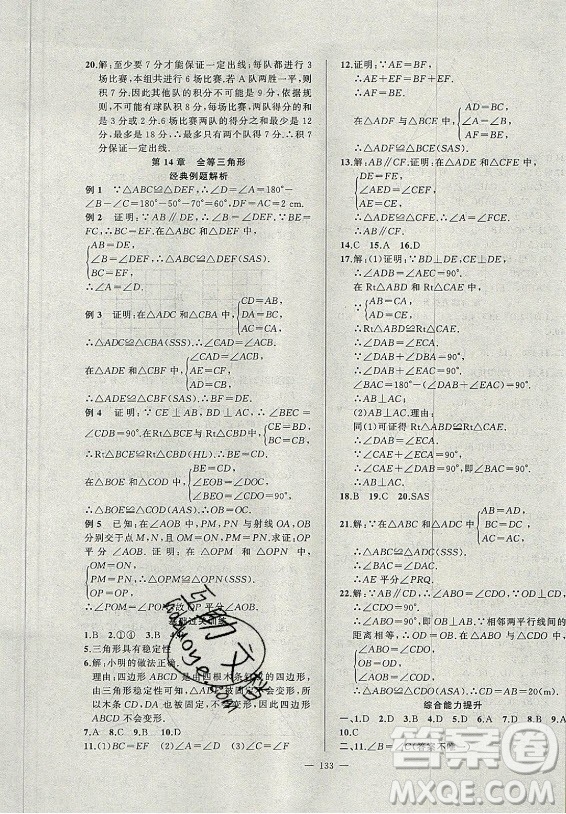 20.解:至少要7分才能保证一定出线;每队都进行3
场比赛,本组共进行6场比赛,若A队两胜一平,则
积7分.因此其他队的积分不可能是9分,依据规
则,不可能有球队积8分,每场比赛,两队得分的和是
3分或2分.6场比赛两队的得分总和最少是12
分,最多是18分,∴最多只有两个队得7分.积7
分保证一定出线.
第14章 全等三角形
经典例题解析
例1 ∵△ABC≌△DEF,∴∠D=∠A=180°-
∠B-∠C=180°-50°-70°=60°,DF=AC=2 cm.
例2 证明:∵AB∥DE,∴∠B=∠DEF.∵BE=
FC,∴BC=EF.在△ABC和△DEF中,
AB=DE,
∠B=∠DEF,∴△ABC≌△DEF(SAS).
BC=EF,
∴∠A=∠D.
例3 证明:在△ADC和△CBA中,
CD=AB,
DA=BC,
AC=CA,
∴△ADC≌△CBA(SSS).∴∠CAD=∠ACB.
在△ADE和△CBF中,
AE=CF,
∠CAD=∠ACB,
AD=CB,
∴△ADE≌△CBF(SAS).∴DE=BF.
例4 证明:∵CE⊥AB,BD⊥AC,∴∠BEC=
∠CDB=90°.在Rt△BCE和Rt△CBD中,
CE=BD,
BC=CB,
∴Rt△BCE≌Rt△CBD(HL).∴BE=CD.
在△BOE和△COD中,
BE=CD,
∠EOB=∠DOC,
∠BEO=∠CDO=90°,
∴△BOE≌△COD(AAS).∴OB=OC.
例5 已知:在∠AOB中,PM,PN与射线OA,OB
分别交于点M,N,且OM=ON,PM=PN.求证:OP
平分∠AOB.证明:在△OPM和△OPN中,
OM=ON,
PM=PN,∴△OPM≌△OPN(SSS).
OP=OP,
∴∠POM=∠PON.即OP平分∠AOB.
1.B 2.①④ 3.B 4.
5.三角形具有稳定性
6.解:小明的做法正确.
理由:四边形ABCD是由四根木条
由三角形稳定性可知,△ADC被固定,不会变形,所
以木条CD,DA也被固定,不会变形,因此四边形
ABCD不会变形.
7.A 8.C 9.B 10.D
11.(1)BC=EF (2)∠A=∠D (3)∠C=∠F
12.证明:∵AE=BF,
∴AE+EF=BF+EF.
∴AF=BE.
在△ADF与△BCE中,
AD=BC,
∠A=∠B,
AF=BE,
∴△ADF≌△BCE(SAS).
13.解:AB∥CF.证明:在△AED和△CEF中,
DE=FE,
∠AED=∠CEF,
AE=CE,
∴△AED≌△CEF(SAS).∴∠A=∠FCE.
∴AB∥CF.
14.C 15.A 16.D
17.解:(1)证明:∵BD⊥DE,CE⊥DE,
∴∠ADB=∠AEC=90°.
在Rt△ABD和Rt△CAE中,
AB=CA,
AD=CE,
∴Rt△ABD≌Rt△CAE.
∴∠DBA=∠EAC.
∵∠DAB+∠DBA=90°,
∴∠EAC+∠DAB=90°.
∠BAC=180°-(∠EAC+∠DAB)=90°.
∴AB⊥AC.
(2)AB⊥AC.理由:
同(1)可证得Rt△ABD≌Rt△CAE.
∴∠DAB=∠ECA.
∵∠EAC+∠ECA=90°,
∴∠CAE+∠DAB=90°,即∠BAC=90°.
∴AB⊥AC.
18.B 19.C 20.SAS
21.解:∵在△ABC和△ADC中
AB=AC,
BC=DC,
AC=AC,
∴△ABC≌△ADC(SSS).
∴∠BAC=∠DAC.
∴AE是∠DAB平分线.
22.解:∵AB∥CD,∴∠ABO=∠CDO.
又∵OD⊥CD,∴∠CDO=90°.
∴∠ABO=90°,即OB⊥AB.∵相邻两平行线间的
距离相等,∴OD=OB.在△ABO与△CDO中,
∠ABO=∠CDO,
OB=OD,
∠AOB=∠COD,
∴△ABO≌△CDO(ASA).∴CD=AB=20(m).
综合能力提升
一、1.D 2.A 3.C 4.D 5.B 6.D 7.D
二、11.∠B=∠C(答案不唯一)
133
答案圈
MXQE.COM